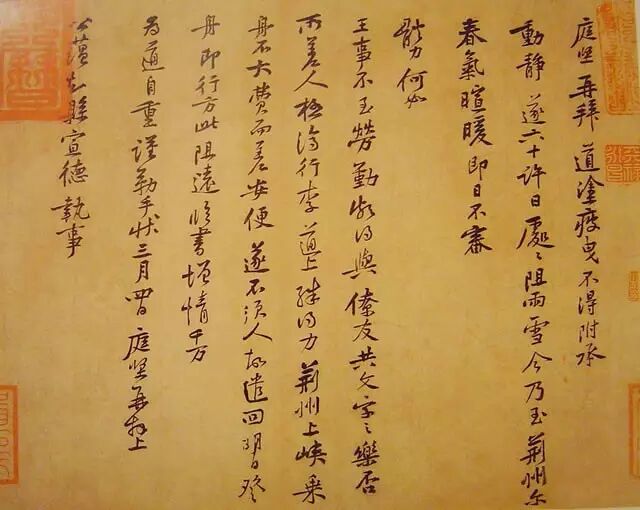 庭坚再拜道塗疲曳不得附承
動静遂六十許日處〻阻雨雪今乃至荆州尔
春氣暄暖即日不審
體力何如
王事不至勞勤能得與僚友共文字之樂否
所差人極濟行李道上殊得力荆州上峽乘
舟不大費而差安便遂不須人故遣回明日登
舟即行方此阻遠臨書增情千万
為道自重謹勒手狀三月四日庭坚再拜上
公藴知縣宣德執事